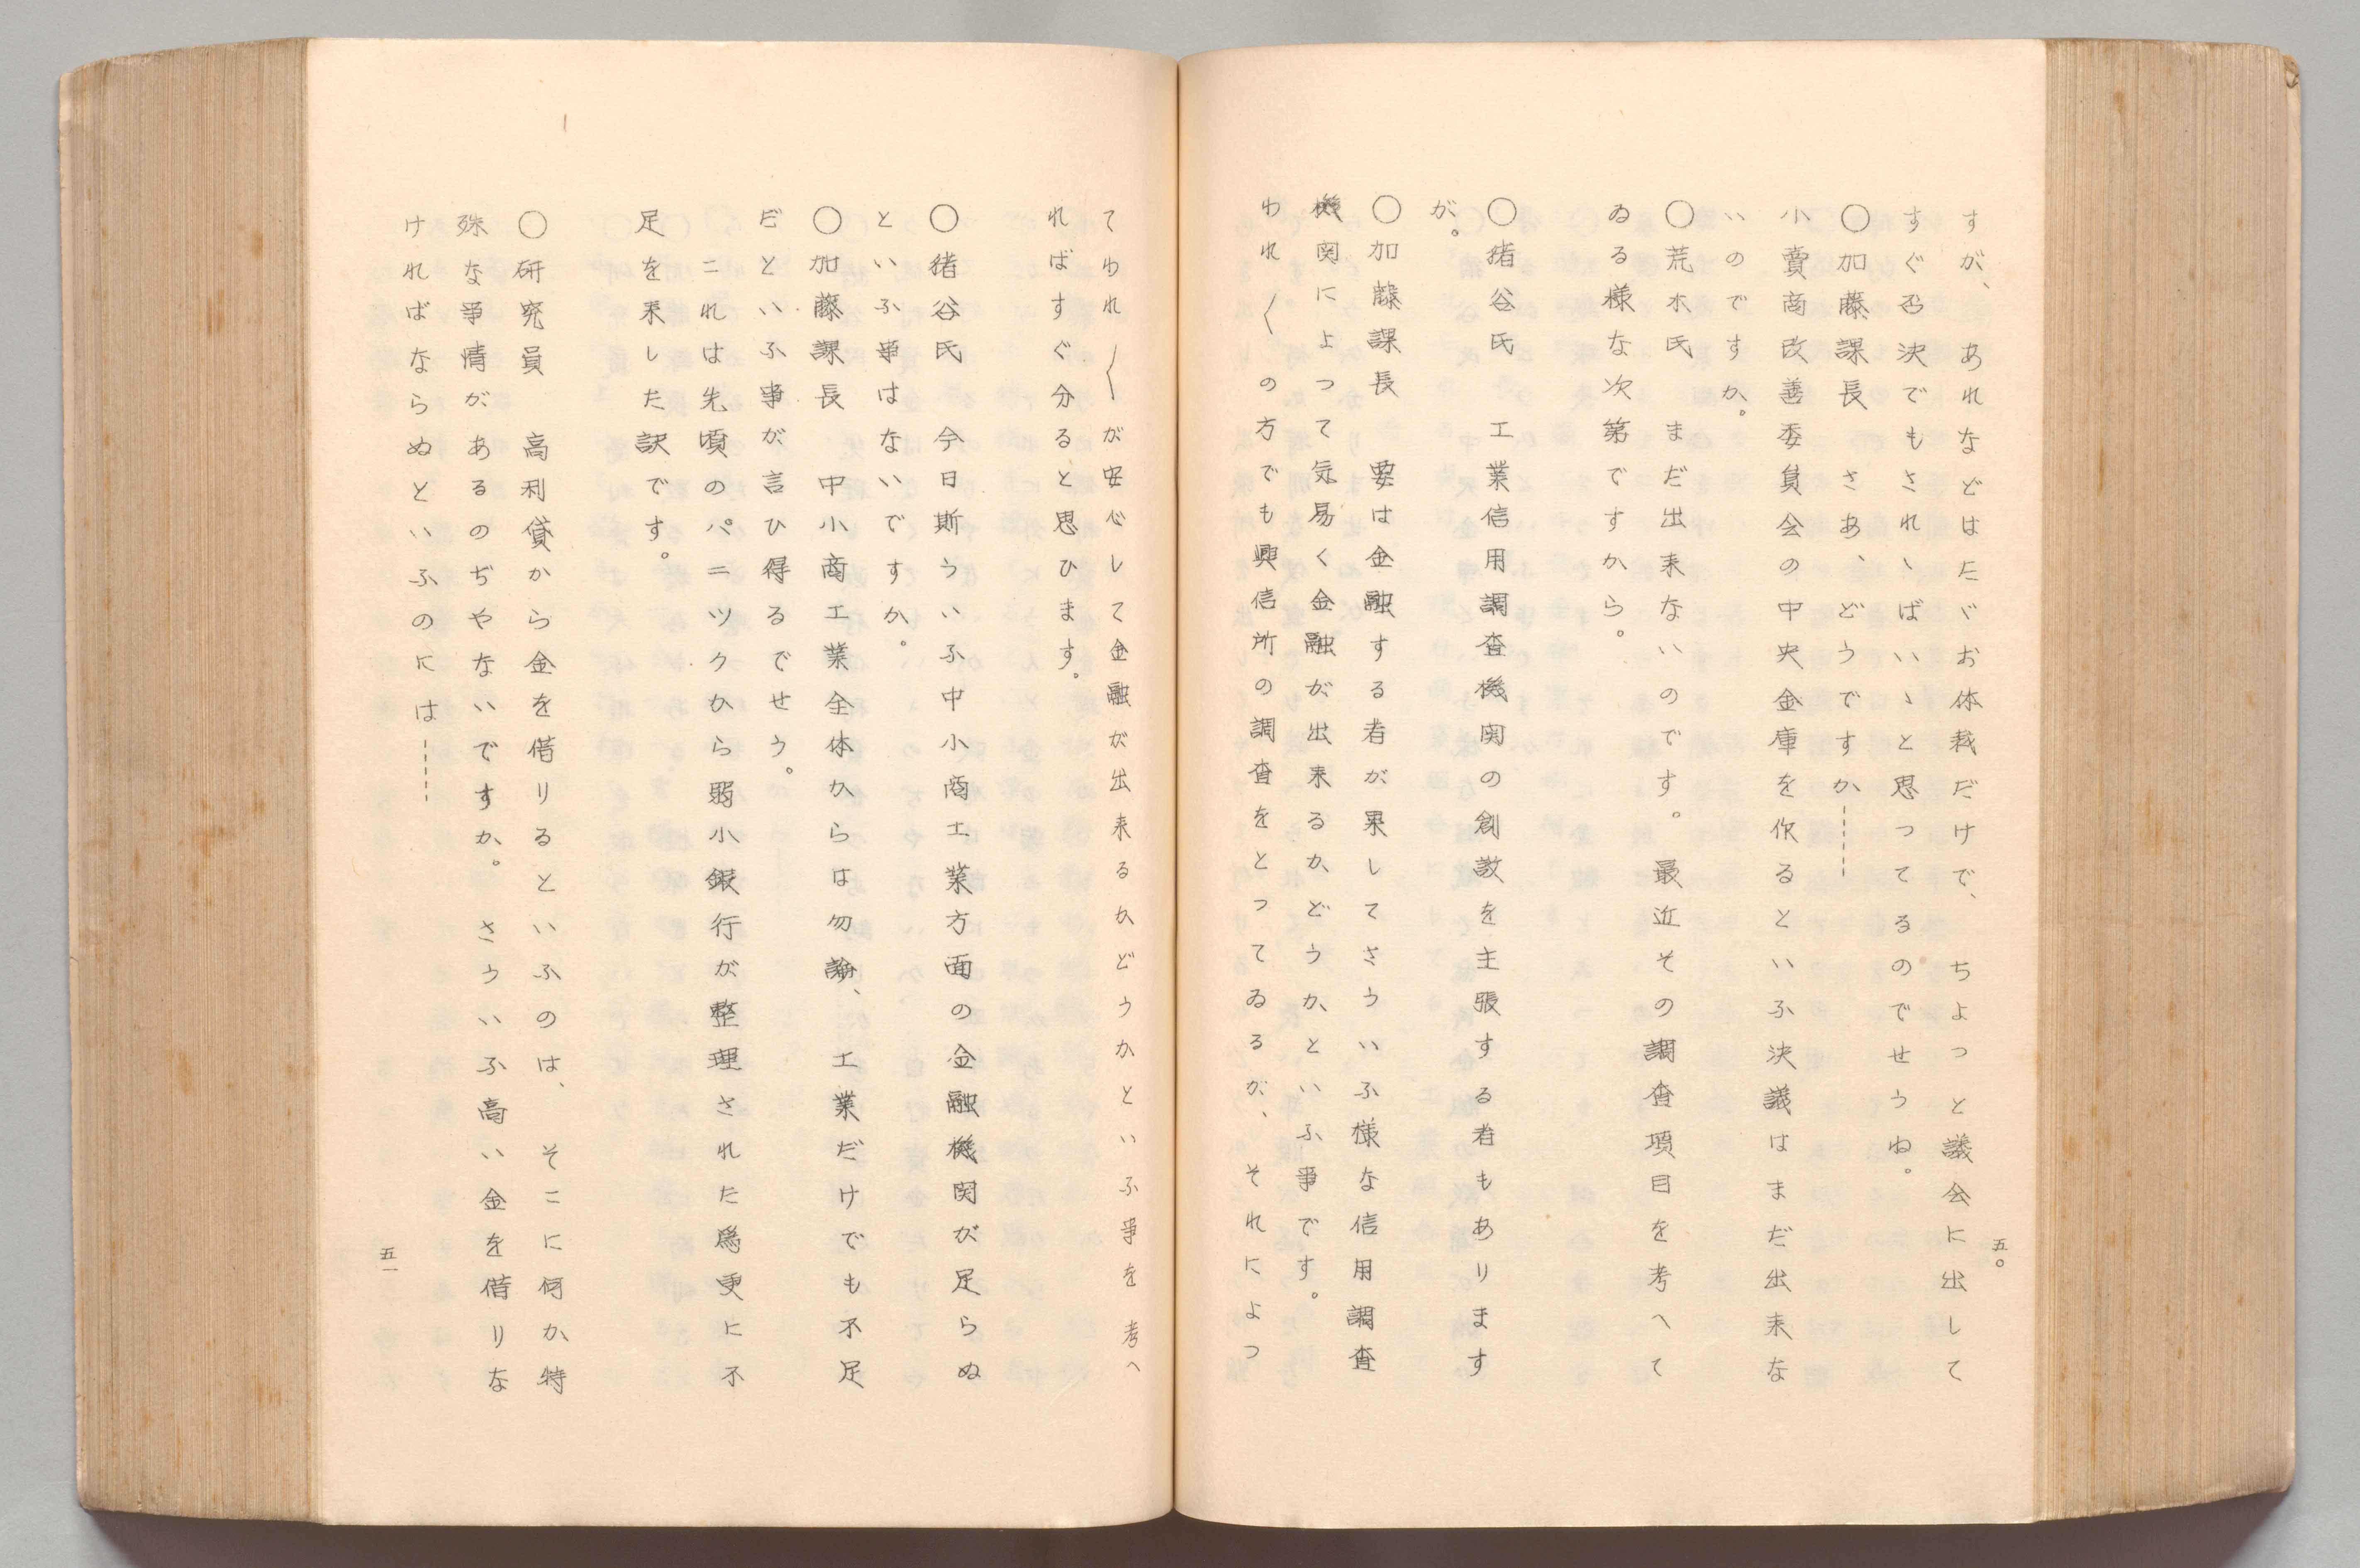 五〇
すが、あれなどはたゞお体裁だけで、ちよっと議会に出して
すぐ否決でもされゝばいゝと思ってるのでせうね。
〇加藤課長　さあ、どうですか-----
小賣商改善委員会の中央金庫を作るといふ決議はまだ出来な
いのですか。
〇荒木氏　まだ出来ないのです。最近その調査項目を考へて
ゐる様な次第ですから。
〇猪谷氏　工業信用調査機関の創設を主張する者もあります
が。
〇加藤課長　要は金融する者が果してさういふ様な信用調査
機関によって気易く金融が出来るか、どうか、といふ事です。
われ〱の方でも興信所の調査をとってゐるが、それによっ
てわれ〱が安心して金融が出来るかどうかといふ事を考へ
ればすぐ分ると思ひます。
〇猪谷氏　今日斯ういふ中小商工業方面の金融機関が足らぬ
といふ事はないですか。
〇加藤課長　中小商工業全体からは勿論、工業だけでも不足
だといふ事が言ひ得るでせう。
これは先頃のパニックから弱小銀行が整理された為更に不
足を来した訳です。
〇研究員　高利貸から金を借りるといふのは、そこに何か特
殊な事情があるのぢやないですか。さういふ高い金を借りな
ければならぬといふのには-----
五一